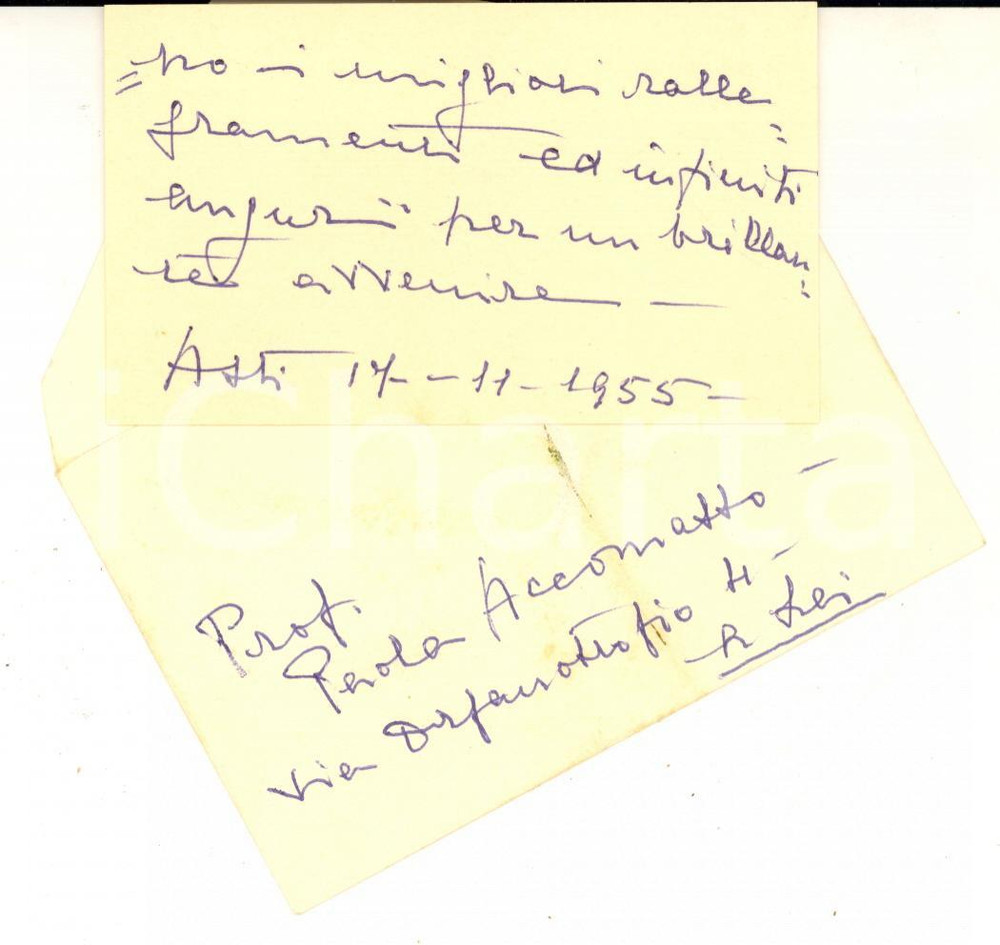 =po i migliori ralle=
gramenti ed infiniti
auguri per un brillan=
te avvenire —
Asti 17--11-1955-
Prof.
Paola Accomatto -
via Orfanotrofio
iCharta